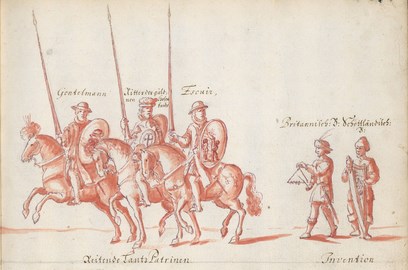 Gentelmann
Ritter des gold-
nen
Escuir,
Britannisch: & Schottländisch:
Reitende Tantz Patrinen.
Invention